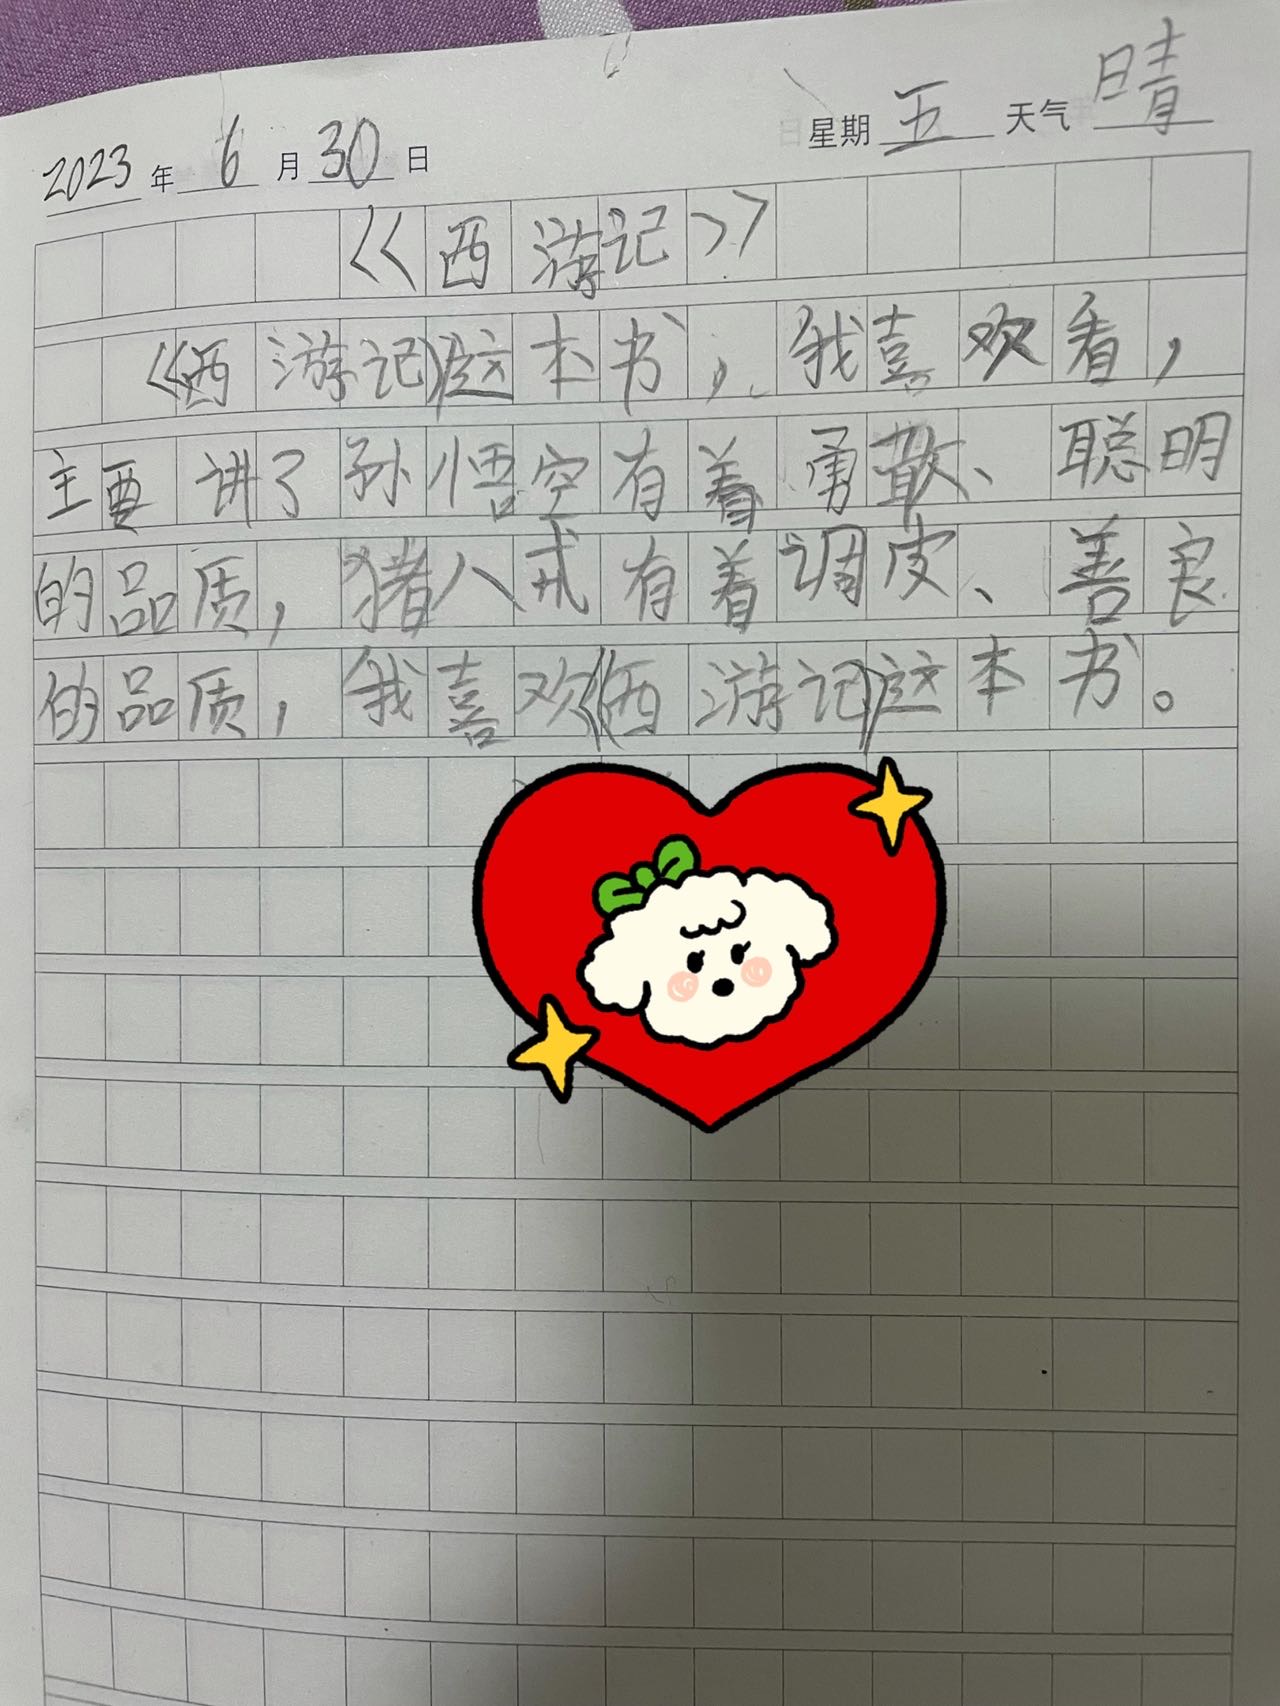 2023年6月30日 星期五 天气晴
《西游记》
《西游记》这本书，我喜欢看，
主要讲了孙悟空有着勇敢、聪明
的品质，猪八戒有着调皮、善良
的品质，我喜欢《西游记》这本书。